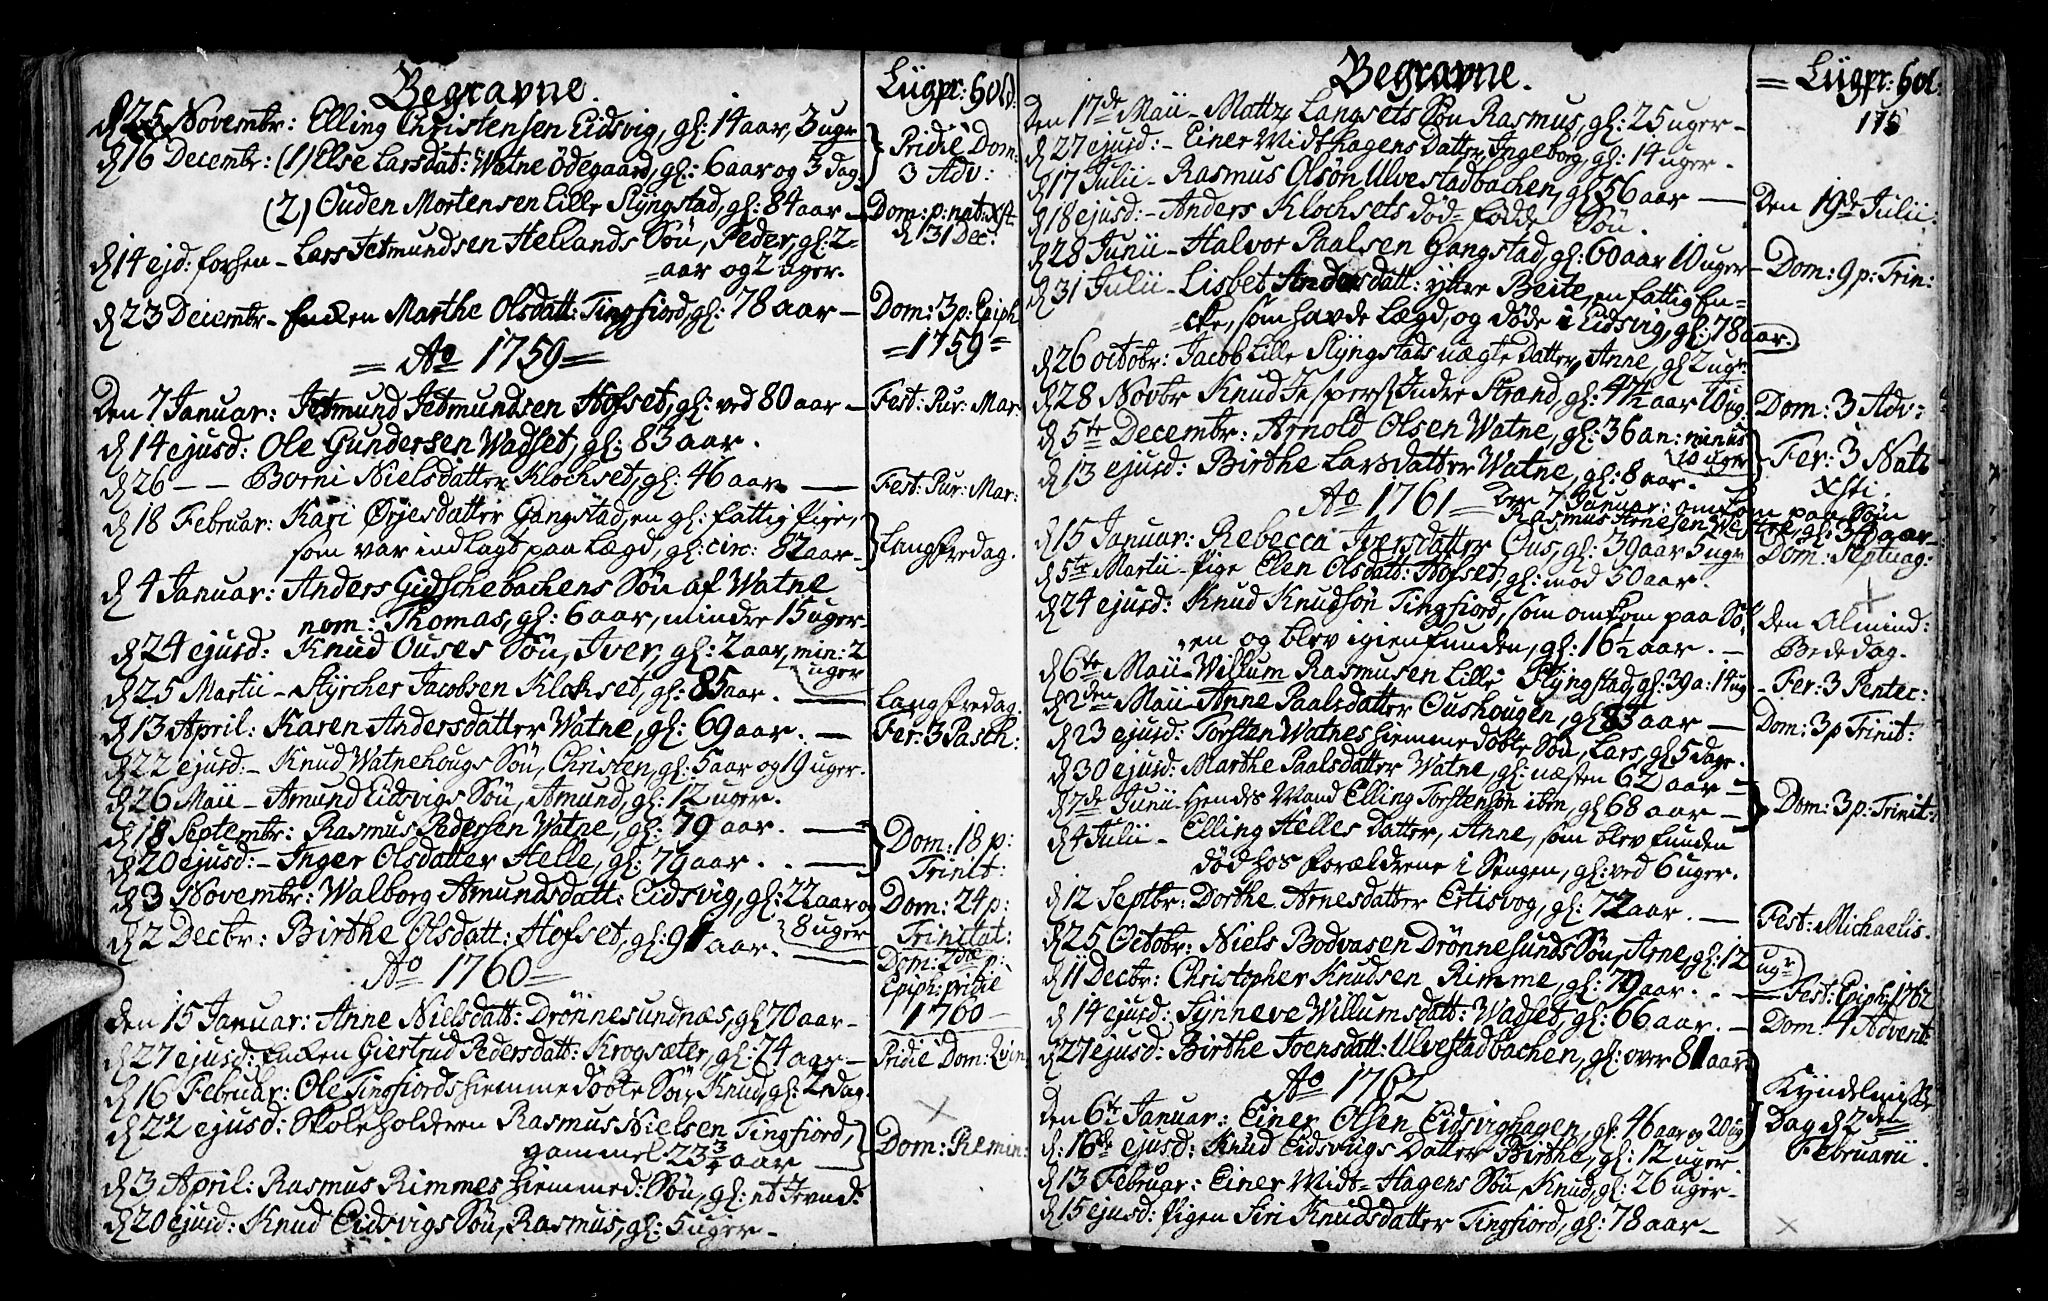 Begravne.
Liigpr: hold:
d 25 Novembr: Elling Christensen Eidsvig, gl: 14 aar, 3 uger
d 16 Decembr: (1) Else Larsdat: Watne Ödegaard, gl: 6 aar og 3 dag.
Pridie Dom:
3 Adv:
(2) Ouden Mortensen Lille Slyngstad, gl: 84 aar –
Dom: p: nat: Xsti
d 31 Dec:
d 14 ejd: forhen – Lars Jetmundsen Hellands Sön, Peder, gl: 2 =
= aar og 2 uger.
d 23 Decembr – Encken Marthe Olsdatt: Tingfiord, gl: 78 aar –
Dom: 3 p: Epiph
= Ao 1759 =
= 1759 =
Den 7 Januar: Jetmund Jetmundsen Hofset, gl: ved 80 aar –
Fest: Pur: Mar:
d 14 ejusd: Ole Gundersen Wadset, gl: 83 aar.
d 26 – – Borni Nielsdatter Klochset, gl: 46 aar –
Fest: Pur: Mar:
d 18 Februar: Kari Ørjesdatter Gangstad, en gl: fattig Pige,
som var indlagt paa Lægd, gl: circ: 82 aar –
Langfredag.
d 4 Januar: Anders Gidschebachens Sön af Watne
nom: Thomas, gl: 6 aar, mindre 15 uger –
d 24 ejusd: Knud Ouses Sön, Iver, gl: 2 aar, min: 2
uger
d 25 Martii – Styrcher Jacobsen Klockset, gl: 85 aar.
Langfredag.
d 13 April: Karen Andersdatter Watne, gl: 69 aar. –
Fer: 3 Pasch:
d 22 ejusd: – Knud Watnehougs Sön, Christen, gl: 5 aar og 19 uger.
d 26 Maii – Amund Eidsvigs Sön, Amund, gl: 12 uger.
d 18 Septembr: Rasmus Pedersen Watne, gl: 79 aar. –
Dom: 18 p:
d 20 ejusd: – Inger Olsdatter Helle, gl: 79 aar. . –
Trinit:
d 3 Novembr: Walborg Amundsdatt: Eidsvig, gl: 22 aar og
8 uger
Dom: 24 p:
Trinitat:
d 2 Decbr: Birthe Olsdatt: Hofset, gl: 91 aar.
Dom: 2die p:
Epiph: pridie
Ao 1760 =
1760 –
Den 15 Januar: Anne Nielsdatt: Drönnesundnæs, gl 70 aar –
d 27 ejusd: Encken Giertrud Pedersdatt: Krogsæter, gl: 74 aar –
Pridie Dom: Qvin
d 16 Februar: Ole Tingfiords hiemmedöbte Sön, Knud, gl: 2 dag.
d 22 ejusd: Skoleholderen Rasmus Nielsen Tingfiord,
gammel 23 3/4 aar –
Dom: Remin:
d 3 April: Rasmus Rimmes hiemmed: Sön, gl: et
d 20 ejusd: Knud Eidsvigs Sön, Rasmus, gl: 5 uger –
Begravne.
= Liigpr: hol
175
Den 17de Maii – Langsets Sön Rasmus, gl: 25 uger –
d 27 ejusd: – Einer Widthagens Datter, Ingeborg, gl: 14 uger.
d 17 Julii – Rasmus Olsön Ulvestadbachen, gl 56 aar –
Den 19de Julii:
d 18 ejusd: – Anders Klochsets död = födde Sön.
d 28 Junii – Halvor Paalsen Gangstad, gl: 60 aar 10 uger –
Dom: 9 p: Trin:
d 31 Julii – Lisbet Andersdatt: ytter Beite, en fattig En =
= cke, som havde Lægd, og döde i Eidsvig, gl: 78 aar.
d 26 Octobr: Jacob Lille Slyngstads uægte Datter, Anne, gl 2 ugr.
d 28 Novbr Knud Jespers Indre Strand, gl: 47 1/2 aar 10 ug:
Dom: 3 Adv:
d 5te Decembr: Arnold Olsen Watne, gl: 36 an: minus
10 uger
d 13 ejusd: Birthe Larsdatter Watne, gl: 8 aar.
Fer: 3 Nat:
Xsti.
Ao 1761 –
Den 7 Januar: omkom paa Söen
Rasmus Arnesen
d 15 Januar: Rebecca Iversdatter Ous, gl: 39 aar 5 ugr
Dom: Septuag:
d 5te Martii – Pige Elen Olsdatt: Hofset, gl: mod 50 aar.
d 24 ejusd: Knud Knudsön Tingfiord, som omkom paa Sö =
en og blev igienfunden, gl: 16 1/2 aar. –
den Almind:
Bededag.
d 6te Maii – Willum Rasmusen Lille Slyngstad, gl: 39 a: 14 ug
– Fer: 3 Pentec:
d 2den Maii – Anne Paalsdatter Oushougen, gl 83 aar –
Dom: 3 p Trinit:
d 23 ejusd: Torsten Watnes hiemmedöbte Sön, Lars, gl 5 dage.
d 30 ejusd: Marthe Paalsdatter Watne, gl: næsten 62 aar –
d 7de Junii – Hendes Mand Elling Torstensön ibm, gl 68 aar –
Dom: 3 p: Trinit:
d 4 Julii – Elling Helles Datter, Anne, som blev funden
död hos Forældrene i Sengen, gl: ved 6 uger.
d 12 Septbr: Dorthe Arnesdatter Ertisvog, gl: 72 aar. –
Fest: Michaelis.
d 25 Octobr: Niels Bodvasen Drönnesunds Sön, Arne, gl: 12
ugr
d 11 Decbr: Christopher Knudsen Rimme, gl: 79 aar. . –
Fest: Epiph: 1762
d 14 ejusd: Synneve Willumsdatt: Wadset, gl: 66 aar. –
Dom: 4 Advent:
d 27 ejusd: Birthe Joensdatt: Ulvestadbachen, gl: over 81 aar
Ao 1762
Kyndelmisse
Dag d 2den
Februarii.
Den 6te Januar: Einer Olsen Eidsvighagen, gl: 46 aar og 20 ug
d: 16de ejusd: Knud Eidsvigs Datter Birthe, gl: 12 uger.
d 13 Februar: Einer Widt = Hagens Sön, Knud, gl: 26 uger –
d 15 ejusd: Pigen Siri Knudsdatter Tingfiord, gl: 78 aar –